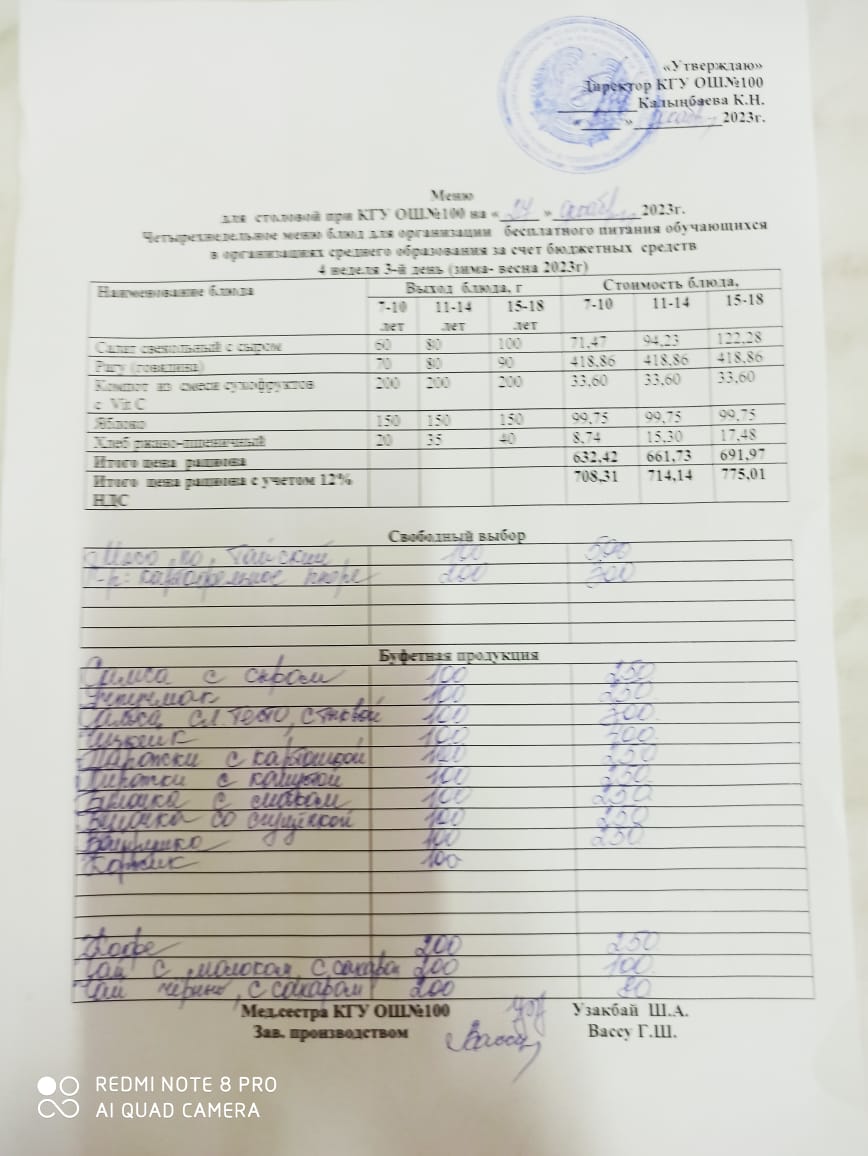 «Утверждаю»
Директор КГУ ОШ№100
__________Калыңбаева К.Н.
«_____»___________2023г.
Меню
для столовой при КГУ ОШ№100 на «_____»___________2023г.
Четырехнедельное меню блюд для организации бесплатного питания обучающихся
в организациях среднего образования за счет бюджетных средств
4 неделя 3-й день (зима- весна 2023г)
Наименование блюда Выход блюда, г Стоимость блюда,
7-10 лет 11-14 лет 15-18 лет 7-10 11-14 15-18
Салат свекольный с сыром 60 80 100 71,47 94,23 122,28
Рагу (говядина) 70 80 90 418,86 418,86 418,86
Компот из смеси сухофруктов 200 200 200 33,60 33,60 33,60
с Vit C
Яблоко 150 150 150 99,75 99,75 99,75
Хлеб ржано-пшеничный 20 35 40 8,74 15,30 17,48
Итого цена рациона 632,42 661,73 691,97
Итого цена рациона с учетом 12% 708,31 714,14 775,01
НДС
Свободный выбор
Мясо по Тайский 100 500
Г-р: картофельное пюре 200 300
Буфетная продукция
Самса с сыром 100 250
100 250
Самса сл. тесто, с 100 300
Чизкейк 100 400
Пирожки с картошкой 100 250
Пирожки с капустой 100 250
Булочка с 100 250
Булочка со сгущёнкой 100 250
100 250
Коржик 100
Кофе 200 250
Чай с молоком, с сахаром 200 100
Чай черный, с сахаром 200 80
Мед.сестра КГУ ОШ№100 Узакбай Ш.А.
Зав. производством Вассу Г.Ш.
REDMI NOTE 8 PRO
AI QUAD CAMERA